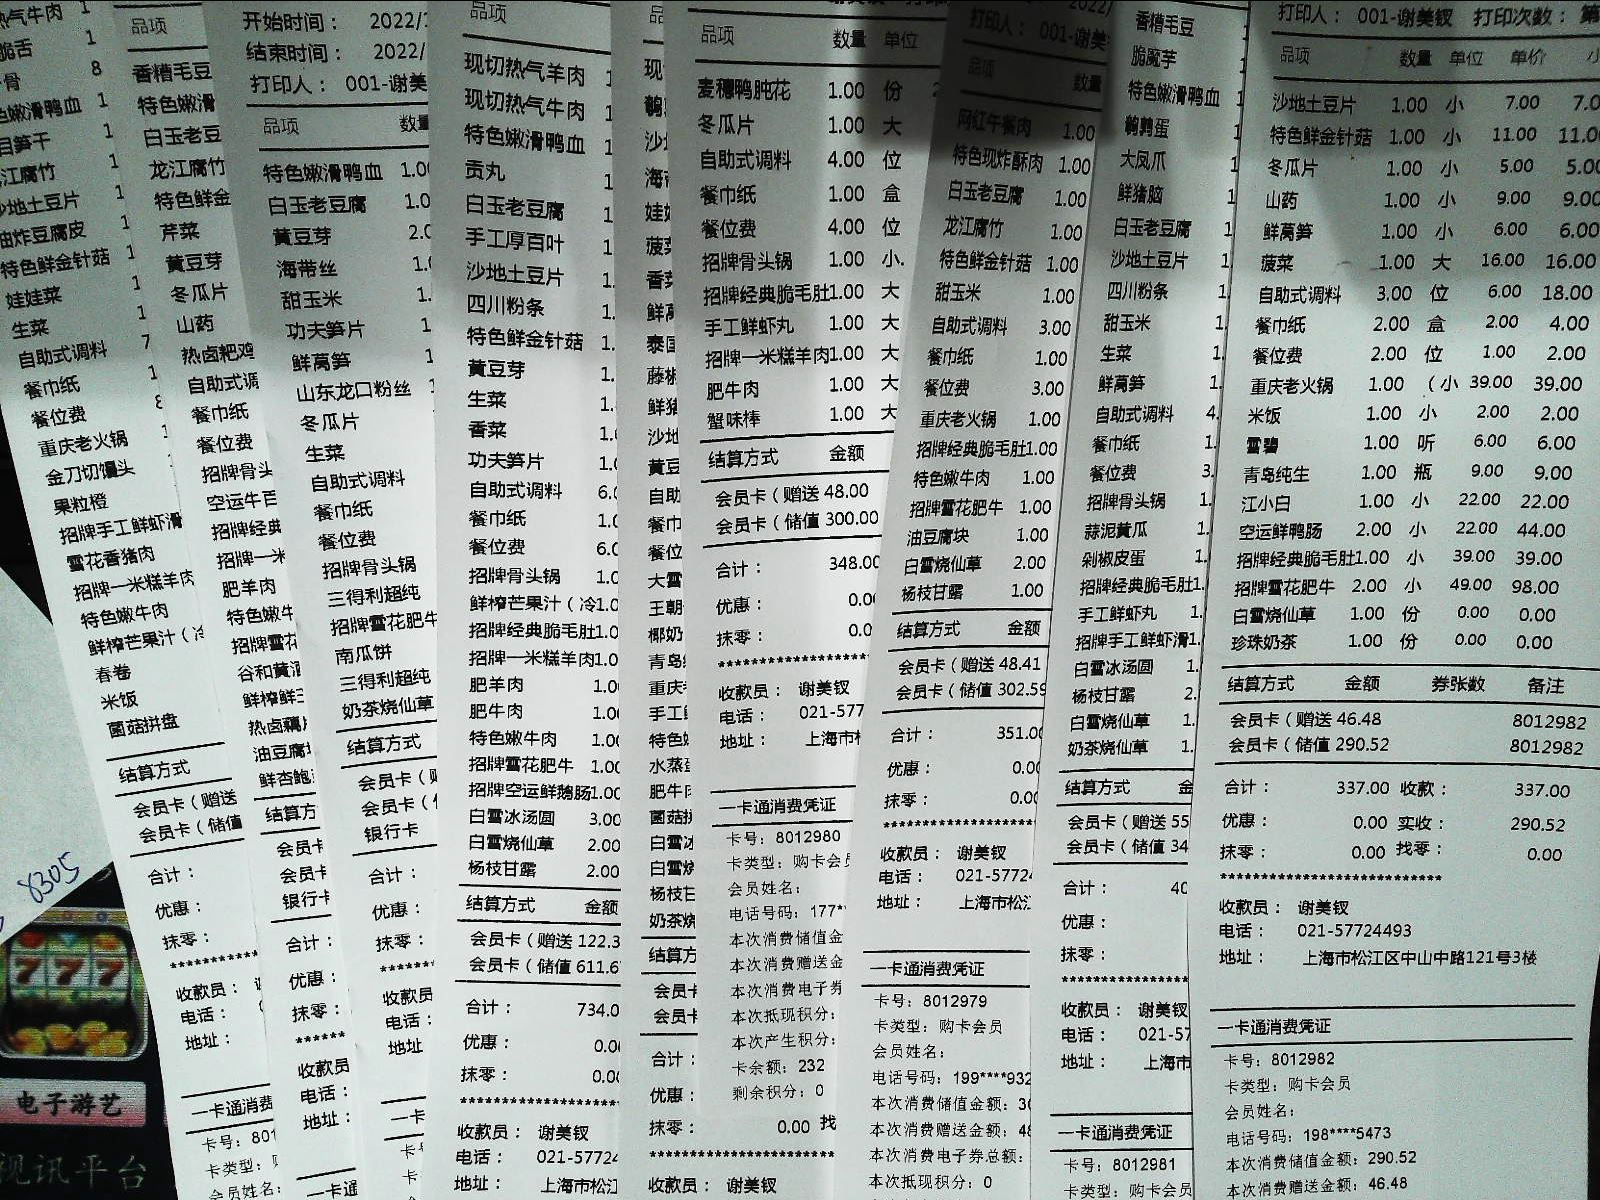 热气牛肉 1
脆舌 1
骨 8
色嫩滑鸭血 1
目笋干 1
江腐竹 1
沙地土豆片 1
油炸豆腐皮 1
特色鲜金针菇 1
娃娃菜 1
生菜 1
自助式调料 7
餐巾纸 1
餐位费 8
重庆老火锅 1
金刀切馒头
果粒橙
招牌手工鲜虾滑
雪花香猪肉
招牌一米糕羊肉
特色嫩牛肉
鲜榨芒果汁（冷
春卷
米饭
菌菇拼盘
结算方式
会员卡（赠送
会员卡（储值
合计：
优惠：
抹零：
********
收款员：
电话：
地址：
一卡通消费
卡号：801
卡类型：
会员姓名：
8305
777
电子游艺
视讯平台
品项
香糟毛豆
特色嫩滑
白玉老豆
龙江腐竹
特色鲜金
芹菜
黄豆芽
冬瓜片
山药
热卤粑鸡
自助式调
餐巾纸
餐位费
招牌骨头
空运牛百
招牌经典
招牌一米
肥羊肉
特色嫩牛
招牌雪花
谷和黄酒
鲜榨鲜
热卤藕片
油豆腐
鲜杏鲍
结算方
会员卡
会员卡
银行卡
合计：
优惠：
抹零：
******
收款员
电话：
地址：
一卡通
开始时间： 2022/
结束时间： 2022/
打印人： 001-谢美
品项 数量
特色嫩滑鸭血 1.00
白玉老豆腐 1.0
黄豆芽 2.0
海带丝 1.
甜玉米 1.
功夫笋片 1
鲜莴笋 1
山东龙口粉丝 1
冬瓜片
生菜
自助式调料
餐巾纸
餐位费
招牌骨头锅
三得利超纯
招牌雪花肥牛
南瓜饼
三得利超纯
奶茶烧仙草
结算方式
会员卡（
会员卡（
银行卡
合计：
优惠：
抹零：
******
收款员
电话：
地址
一卡
卡号
品项
现切热气羊肉 1
现切热气牛肉 1
特色嫩滑鸭血 1
贡丸 1
白玉老豆腐 1
手工厚百叶 1
沙地土豆片 1
四川粉条 1
特色鲜金针菇 1.
黄豆芽 1.
生菜 1.
香菜 1.
功夫笋片 1.0
自助式调料 6.
餐巾纸 1.0
餐位费 6.0
招牌骨头锅 1.0
鲜榨芒果汁（冷1.0
招牌经典脆毛肚1.0
招牌一米糕羊肉1.0
肥羊肉 1.0
肥牛肉 1.0
特色嫩牛肉 1.00
招牌雪花肥牛 1.00
招牌空运鲜鹅肠1.00
白雪冰汤圆 3.00
白雪烧仙草 2.00
杨枝甘露 2.00
结算方式 金额
会员卡（赠送 122.3
会员卡（储值 611.6
合计： 734.0
优惠： 0.0
抹零： 0.00
*****************
收款员： 谢美钗
电话： 021-57724
地址： 上海市松江
品
现
鹌
沙
海带
娃
菠菜
香菜
鲜莴
泰国
藤椒
鲜猪
沙地
黄豆
自助
餐巾
餐位
大雪
王朝
椰奶
青岛
重庆
手工
特色
水蒸蛋
肥牛肉
菌菇拼
白雪冰
白雪烧
杨枝甘
奶茶烧
结算方
会员卡
会员卡
合计：
优惠：
抹零： 0.00 找
*******************
收款员： 谢美钗
品项 数量 单位
麦穗鸭肫花 1.00 份 2
冬瓜片 1.00 大
自助式调料 4.00 位
餐巾纸 1.00 盒
餐位费 4.00 位
招牌骨头锅 1.00 小
招牌经典脆毛肚1.00 大
手工鲜虾丸 1.00 大
招牌一米糕羊肉1.00 大
肥牛肉 1.00 大
蟹味棒 1.00 大
结算方式 金额
会员卡（赠送 48.00
会员卡（储值 300.00
合计： 348.00
优惠： 0.0
抹零： 0.0
*****************
收款员： 谢美钗
电话： 021-577
地址： 上海市松
一卡通消费凭证
卡号：8012980
卡类型：购卡会员
会员姓名：
电话号码：177**
本次消费储值金
本次消费赠送金
本次消费电子券
本次抵现积分：
本次产生积分：
卡余额：232
剩余积分：0
2022/
打印人： 001-谢美
品项 数量
网红午餐肉 1.00
特色现炸酥肉 1.00
白玉老豆腐 1.00
龙江腐竹 1.00
特色鲜金针菇 1.00
甜玉米 1.00
自助式调料 3.00
餐巾纸 1.00
餐位费 3.00
重庆老火锅 1.00
招牌经典脆毛肚1.00
特色嫩牛肉 1.00
招牌雪花肥牛 1.00
油豆腐块 1.00
白雪烧仙草 2.00
杨枝甘露 1.00
结算方式 金额
会员卡（赠送 48.41
会员卡（储值 302.59
合计： 351.00
优惠： 0.00
抹零： 0.00
*****************
收款员： 谢美钗
电话： 021-57724
地址： 上海市松江
一卡通消费凭证
卡号：8012979
卡类型：购卡会员
会员姓名：
电话号码：199****932
本次消费储值金额：30
本次消费赠送金额：48
本次消费电子券总额：
本次抵现积分：0
香糟毛豆 1
脆魔芋 1
特色嫩滑鸭血 1
鹌鹑蛋 1
大凤爪 1
鲜猪脑 1
白玉老豆腐 1
沙地土豆片 1
四川粉条 1.
甜玉米 1.
生菜 1.
鲜莴笋 1.
自助式调料 4.
餐巾纸 1.
餐位费 3.
招牌骨头锅 1.
蒜泥黄瓜 1.
剁椒皮蛋 1.
招牌经典脆毛肚1.
手工鲜虾丸 1.
招牌手工鲜虾滑1.
白雪冰汤圆 1.
杨枝甘露 2.
白雪烧仙草 1.
奶茶烧仙草 1.
结算方式 金
会员卡（赠送 55
会员卡（储值 34
合计： 40
优惠：
抹零：
**************
收款员： 谢美钗
电话： 021-57
地址： 上海市
一卡通消费凭证
卡号：8012981
卡类型：购卡会员
打印人： 001-谢美钗 打印次数： 第
品项 数量 单位 单价 小
沙地土豆片 1.00 小 7.00 7.0
特色鲜金针菇 1.00 小 11.00 11.0
冬瓜片 1.00 小 5.00 5.00
山药 1.00 小 9.00 9.00
鲜莴笋 1.00 小 6.00 6.00
菠菜 1.00 大 16.00 16.00
自助式调料 3.00 位 6.00 18.00
餐巾纸 2.00 盒 2.00 4.00
餐位费 2.00 位 1.00 2.00
重庆老火锅 1.00 （小 39.00 39.00
米饭 1.00 小 2.00 2.00
雪碧 1.00 听 6.00 6.00
青岛纯生 1.00 瓶 9.00 9.00
江小白 1.00 小 22.00 22.00
空运鲜鸭肠 2.00 小 22.00 44.00
招牌经典脆毛肚1.00 小 39.00 39.00
招牌雪花肥牛 2.00 小 49.00 98.00
白雪烧仙草 1.00 份 0.00 0.00
珍珠奶茶 1.00 份 0.00 0.00
结算方式 金额 券张数 备注
会员卡（赠送 46.48 8012982
会员卡（储值 290.52 8012982
合计： 337.00 收款： 337.00
优惠： 0.00 实收： 290.52
抹零： 0.00 找零： 0.00
*************************
收款员： 谢美钗
电话： 021-57724493
地址： 上海市松江区中山中路121号3楼
一卡通消费凭证
卡号：8012982
卡类型：购卡会员
会员姓名：
电话号码：198****5473
本次消费储值金额：290.52
本次消费赠送金额：46.48